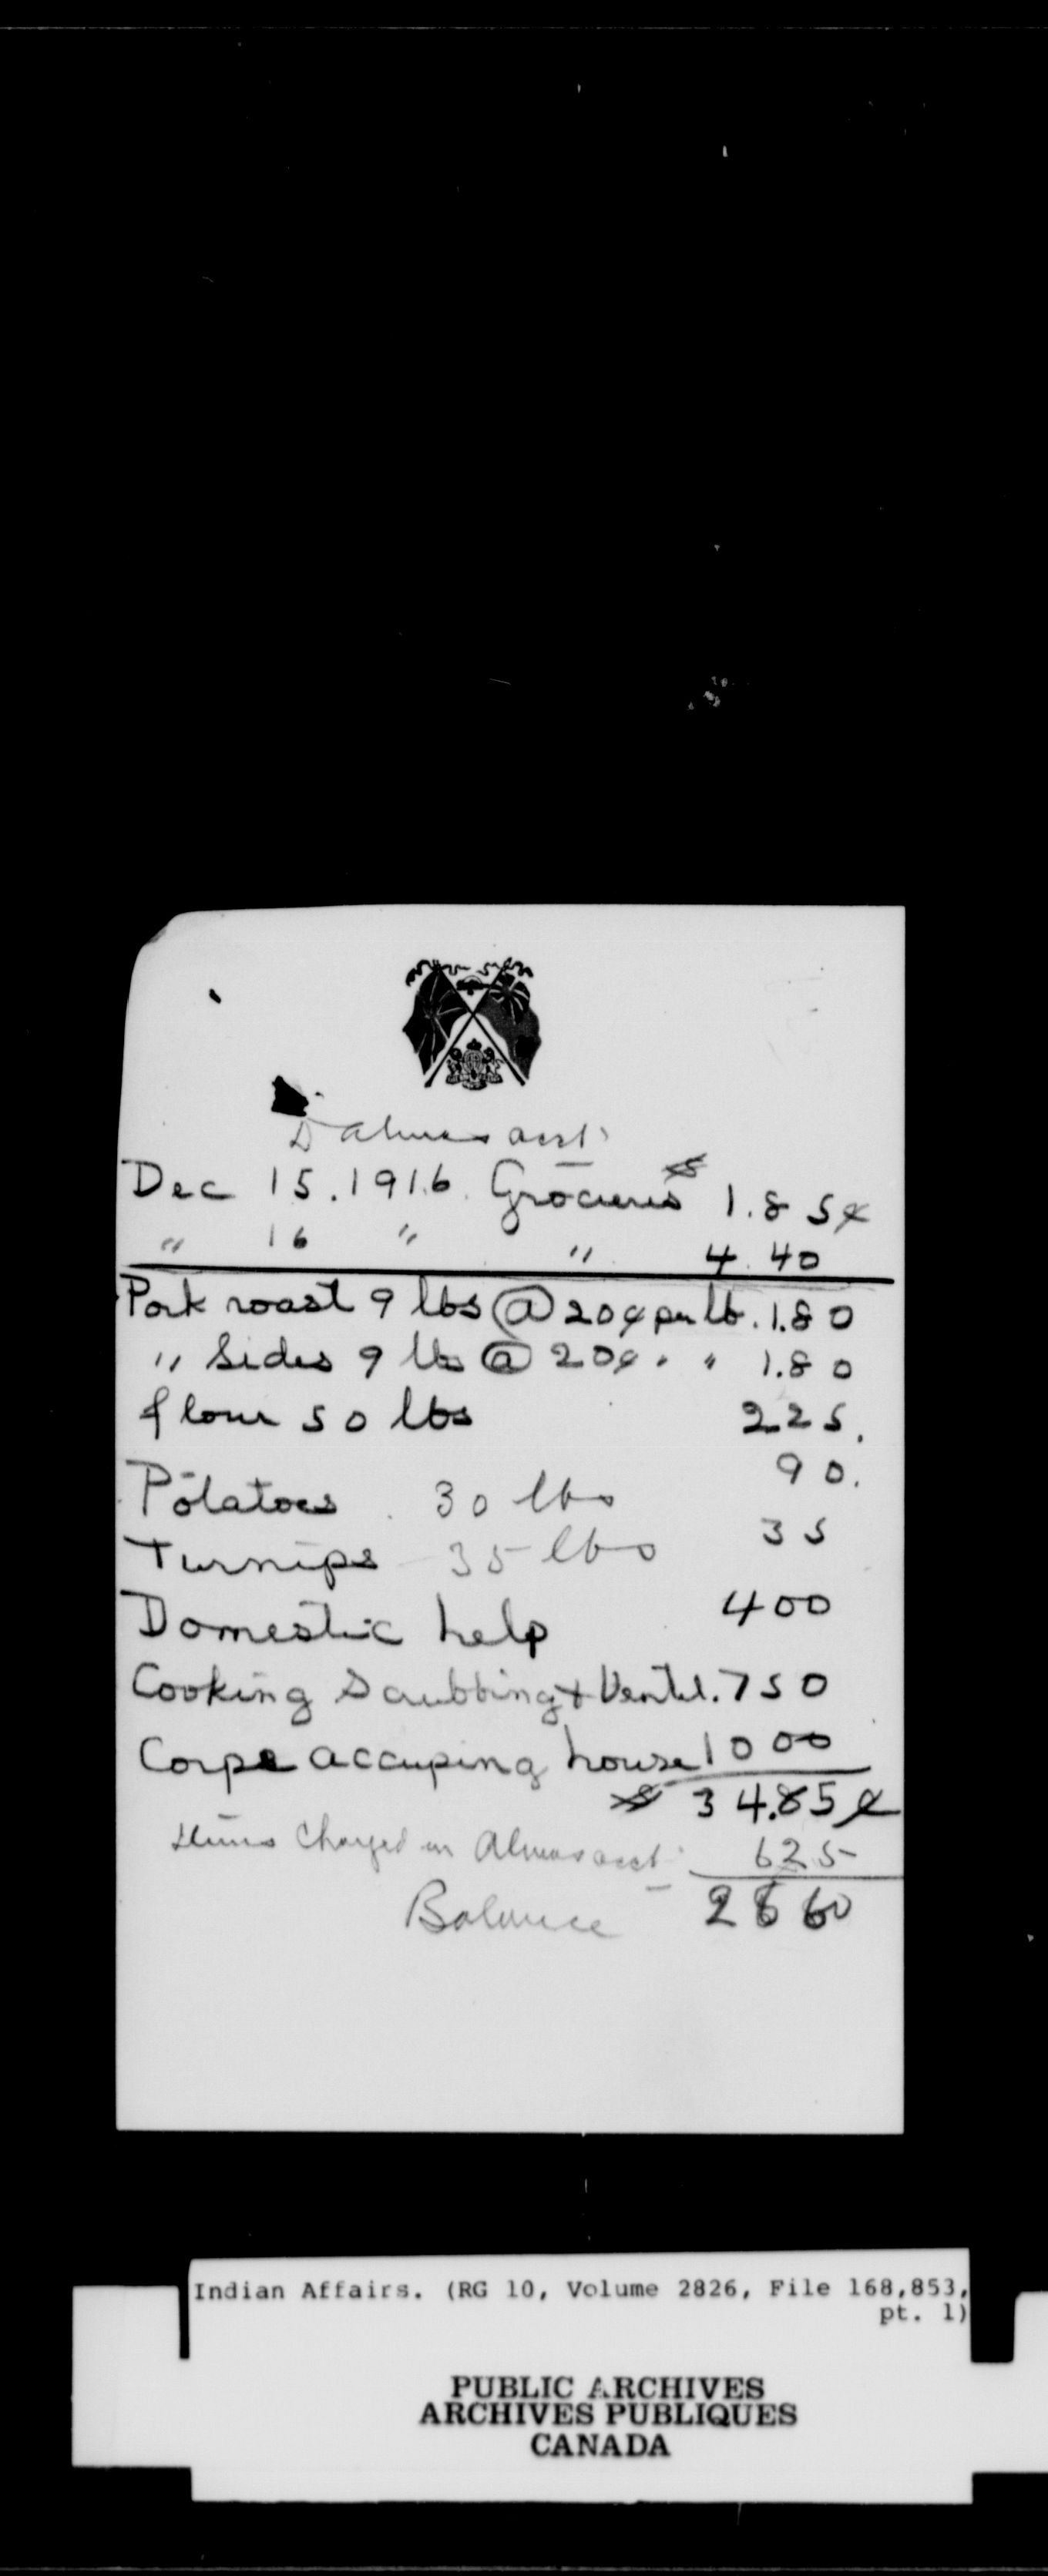 D Almas acct
Dec 15. 1916. Groceries $ 1.85¢
" 16 " " 4.40
Pork roast 9 lbs @ 20¢ per lb. 1.80
" Sides 9 lbs @ 20¢ " " 1.80
flour 50 lbs 225.
Potatoes 30 lbs 90.
Turnips 35 lbs 35
Domestic help 400
Cooking Scrubbing & Ventil. 750
Corpe accuping house 1000
$ 34.85¢
Items Charged in Almas acct 625
Balance 2860
Indian Affairs. (RG 10, Volume 2826, File 168,853,
pt. 1)
PUBLIC ARCHIVES
ARCHIVES PUBLIQUES
CANADA